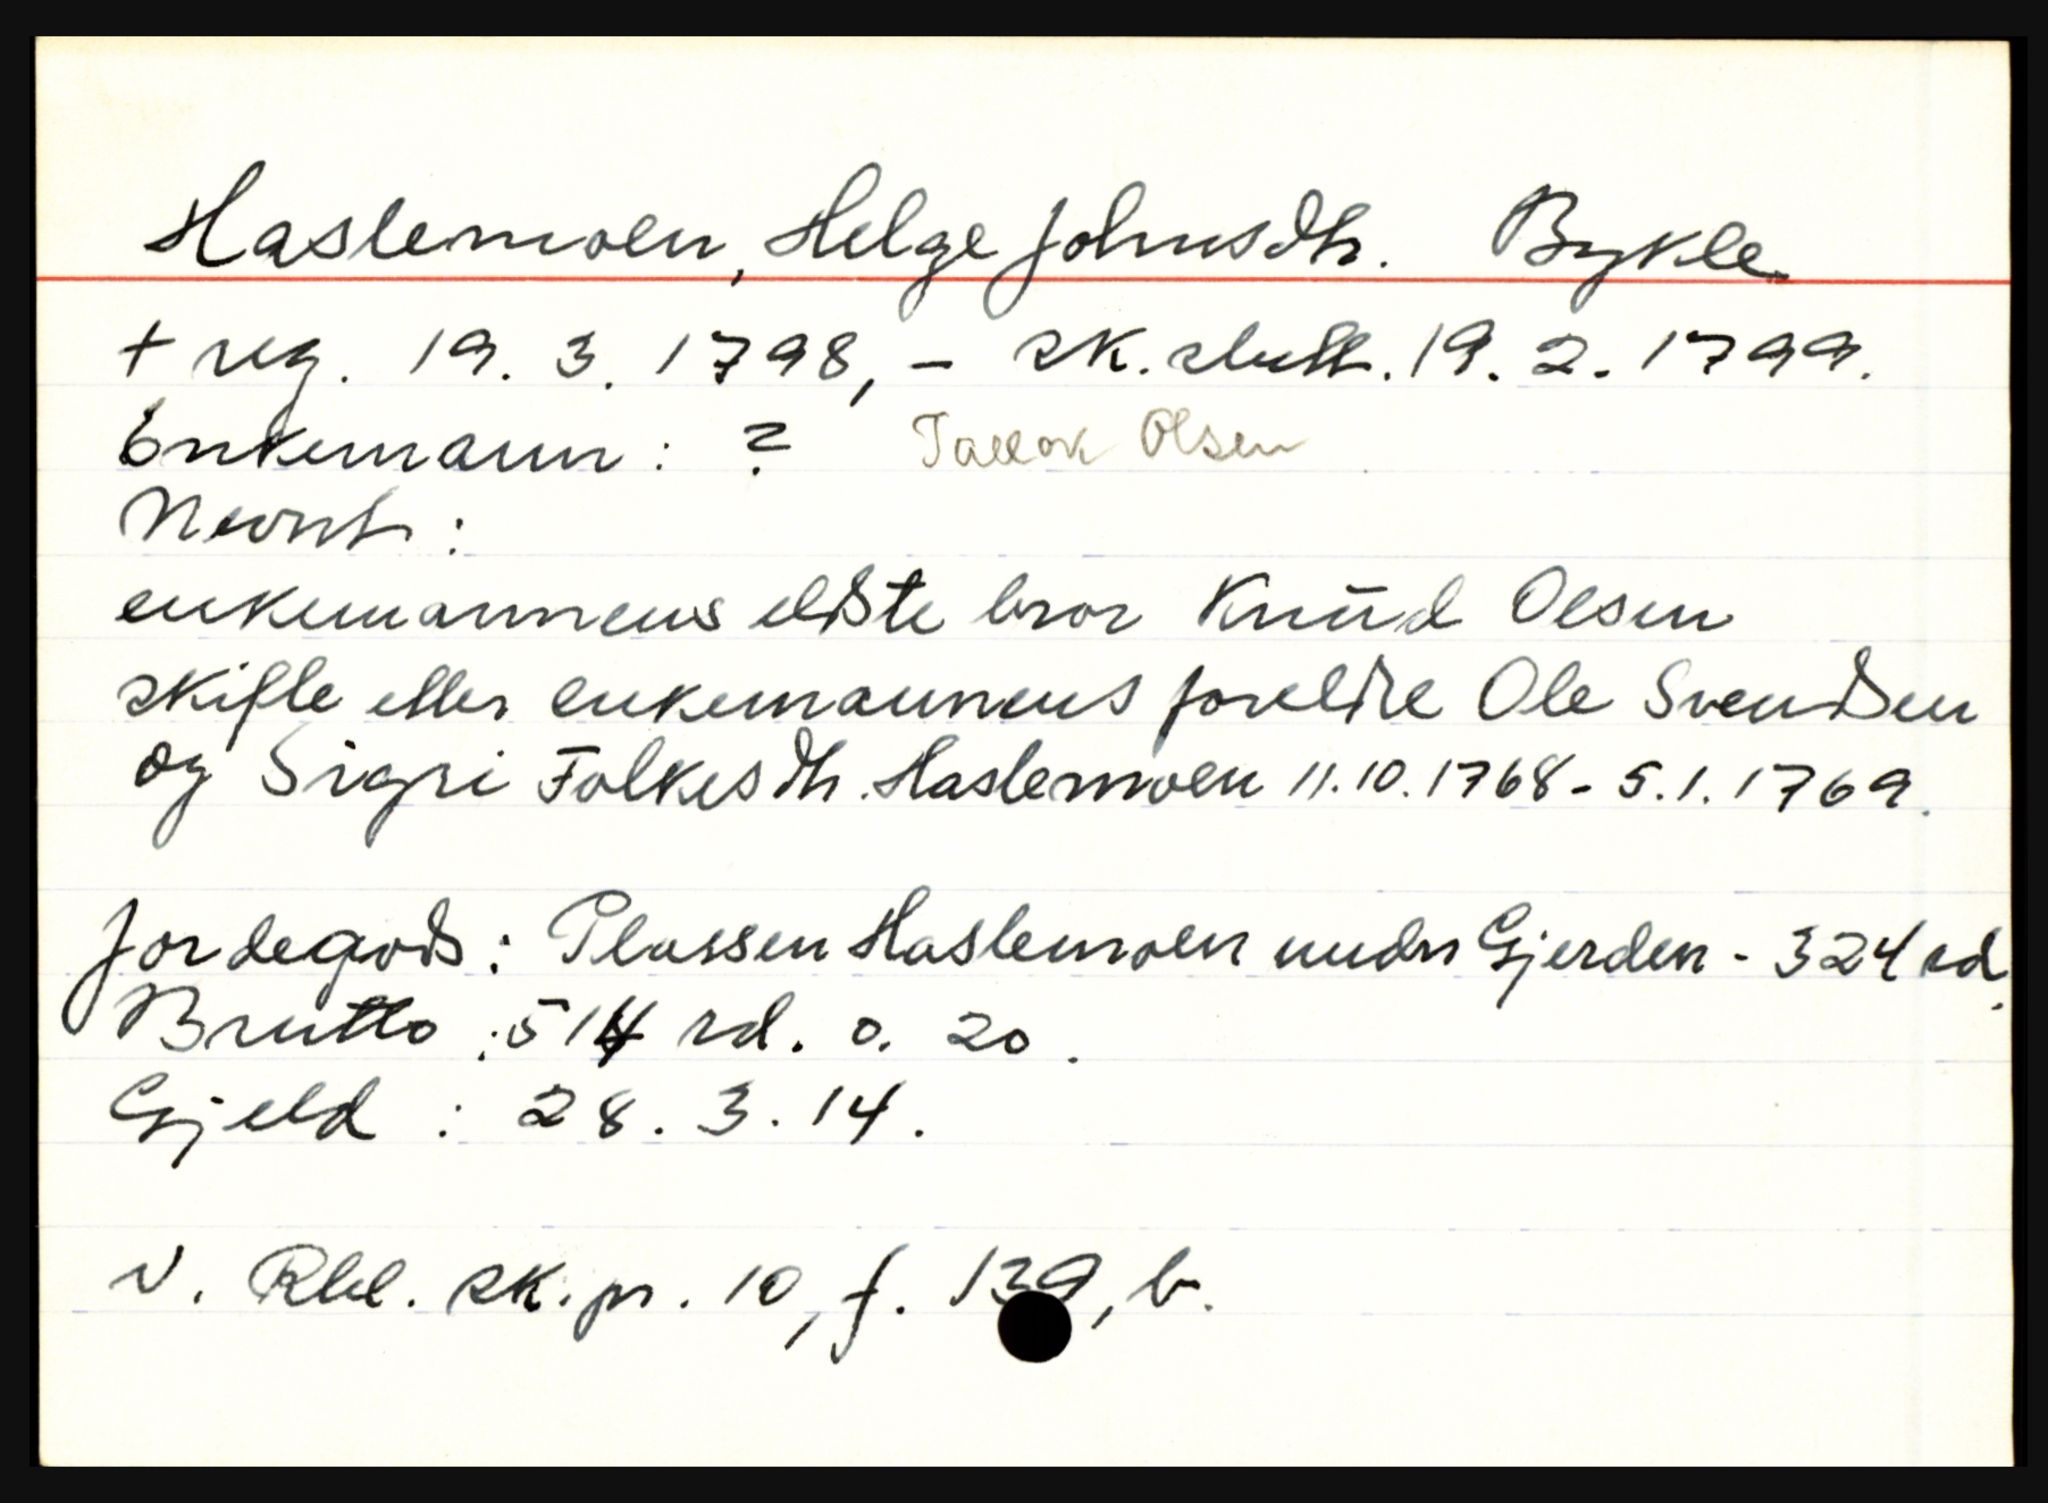 Haslemoen, Helge Johnsdtr. Bykle.
+ reg. 19. 3. 1798, - sk. slutt. 19. 2. 1799.
Enkemann: ? Tallok Olsen
Nevnt:
enkemannens eldste bror Knud Olsen
skifte etter enkemannens foreldre Ole Svendsen
og Sigri Folkesdtr. Haslemoen 11.10.1768 - 5.1.1769.
Jordegods: Plassen Haslemoen under Gjerden - 324 rd.
Brutto : 514 rd. o. 20.
Gjeld : 28. 3. 14.
v. Rbl. sk. pr. 10, f. 139, b.